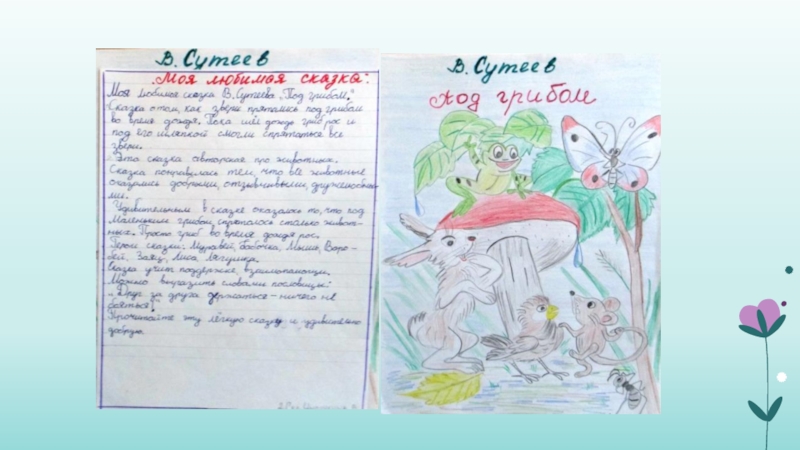 В. Сутеев
Моя любимая сказка:
Моя любимая сказка В. Сутеева „Под грибом."
Сказка о том, как звери прятались под грибом
во время дождя. Пока шёл дождь гриб рос и
под его шляпкой смогли спрятаться все
звери.
Эта сказка авторская про животных.
Сказка понравилась тем, что все животные
оказались добрыми, отзывчивыми, дружелюбны-
ми.
Удивительным в сказке оказалось то, что под
маленьким грибом спряталось столько живот-
ных. Просто гриб во время дождя рос.
Герои сказки: Муравей, бабочка, Мышь, Воро-
бей, Заяц, Лиса, Лягушка.
Сказка учит поддержке, взаимопомощи.
Можно выразить словами пословицы:
„Друг за друга держаться – ничего не
бояться".
Прочитайте эту лёгкую сказку и удивительно
добрую.
В. Сутеев
Под грибом